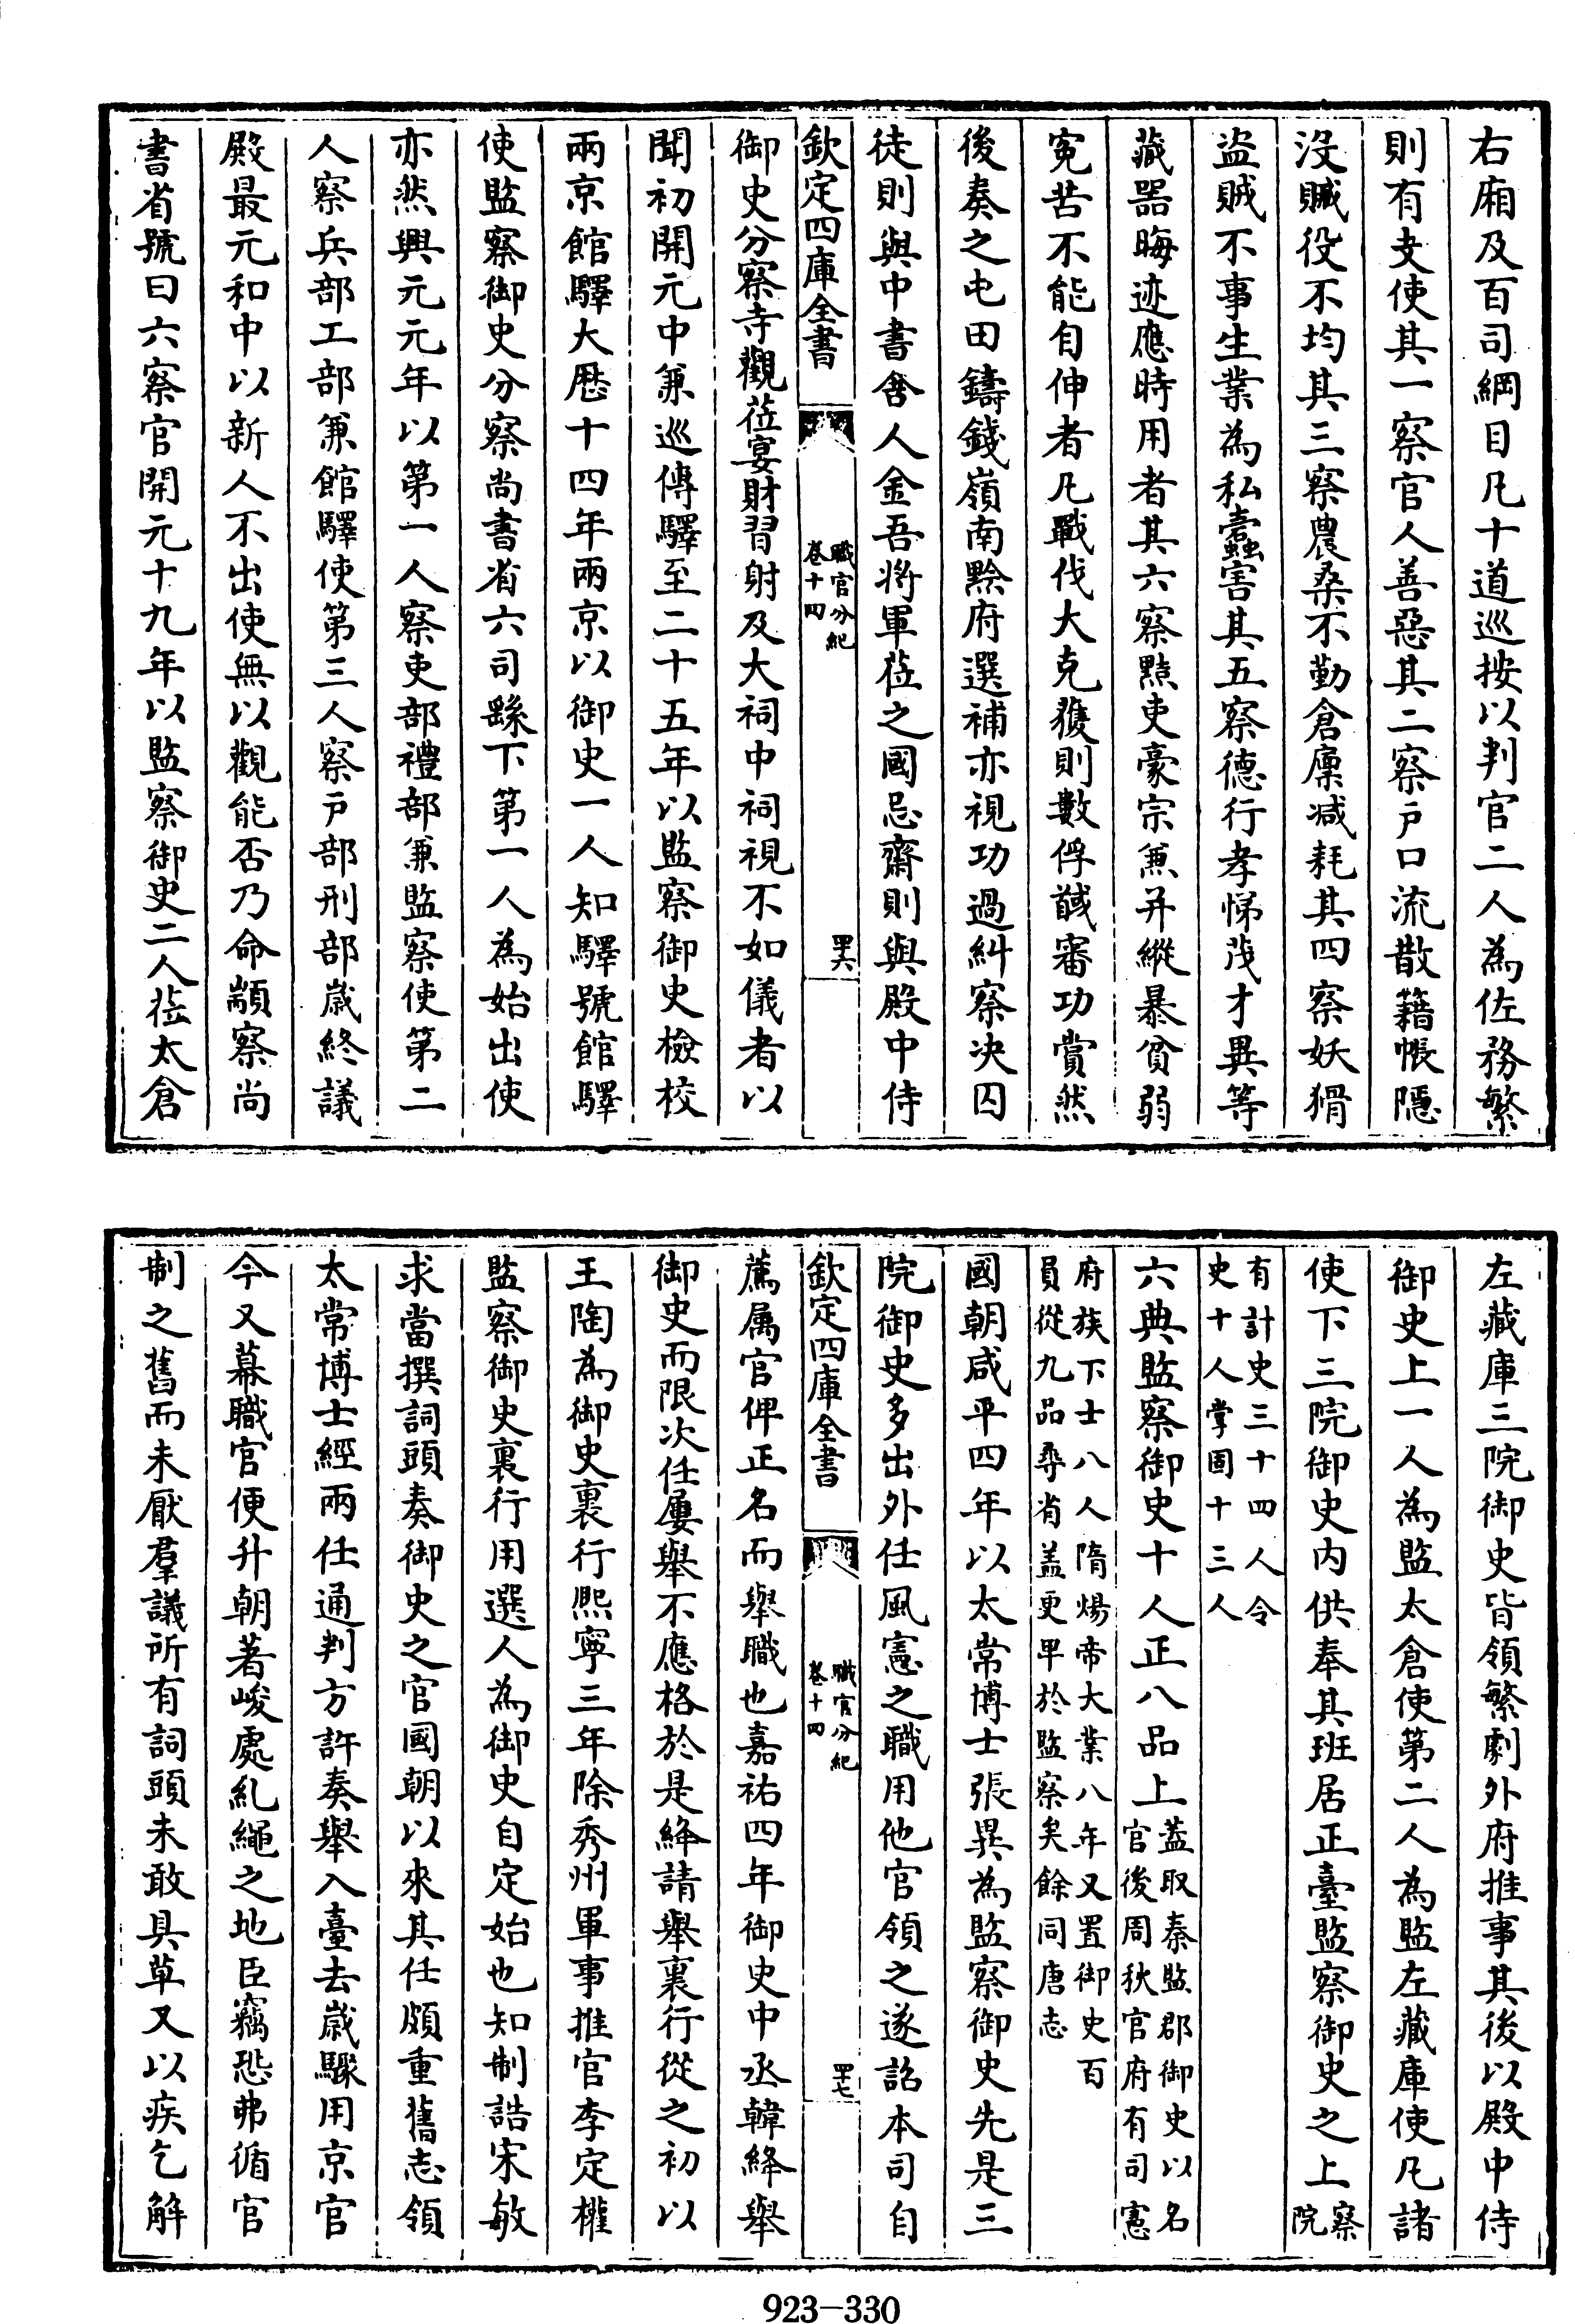 右廂及百司綱目凡十道巡按以判官二人為佐務繁
則有支使其一察官人善惡其二察户口流散籍帳隱
没贓役不均其三察農桑不勤倉廩減耗其四察妖猾
盜賊不事生業為私蠹害其五察德行孝悌茂才異等
藏器晦迹應時用者其六察黠吏豪宗兼并縱暴貧弱
寃苦不能自伸者凡戰伐大克獲則數俘馘審功賞然
後奏之屯田鑄錢嶺南黔府選補亦視功過糾察决囚
徒則與中書舍人金吾將軍莅之國忌齋則與殿中侍
欽定四庫全書
職官分紀
卷十四
四十六
御史分察寺觀莅宴財習射及大祠中祠視不如儀者以
聞初開元中兼巡傳驛至二十五年以監察御史檢校
兩京館驛大厯十四年兩京以御史一人知驛號館驛
使監察御史分察尚書省六司繇下第一人為始出使
亦然興元元年以第一人察吏部禮部兼監察使第二
人察兵部工部兼館驛使第三人察户部刑部嵗終議
殿最元和中以新人不出使無以觀能否乃命顓察尚
書省號曰六察官開元十九年以監察御史二人莅太倉
左藏庫三院御史皆領繁劇外府推事其後以殿中侍
御史上一人為監太倉使第二人為監左藏庫使凡諸
使下三院御史内供奉其班居正臺監察御史之上察
院
有計史三十四人令
史十人掌固十三人
六典監察御史十人正八品上蓋取秦監郡御史以名
官後周秋官府有司憲
府族下士八人隋煬帝大業八年又置御史百
員從九品尋省蓋更卑於監察矣餘同唐志
國朝咸平四年以太常博士張巽為監察御史先是三
院御史多出外任風憲之職用他官領之遂詔本司自
欽定四庫全書
職官分紀
卷十四
四十七
薦属官俾正名而舉職也嘉祐四年御史中丞韓絳舉
御史而限次任屢舉不應格於是絳請舉裏行從之初以
王陶為御史裏行熙寧三年除秀州軍事推官李定權
監察御史裏行用選人為御史自定始也知制誥宋敏
求當撰詞頭奏御史之官國朝以來其任頗重舊志領
太常博士經兩任通判方許奏舉入臺去嵗驟用京官
今又幕職官便升朝著峻處糺繩之地臣竊恐弗循官
制之舊而未厭羣議所有詞頭未敢具草又以疾乞解
923-330